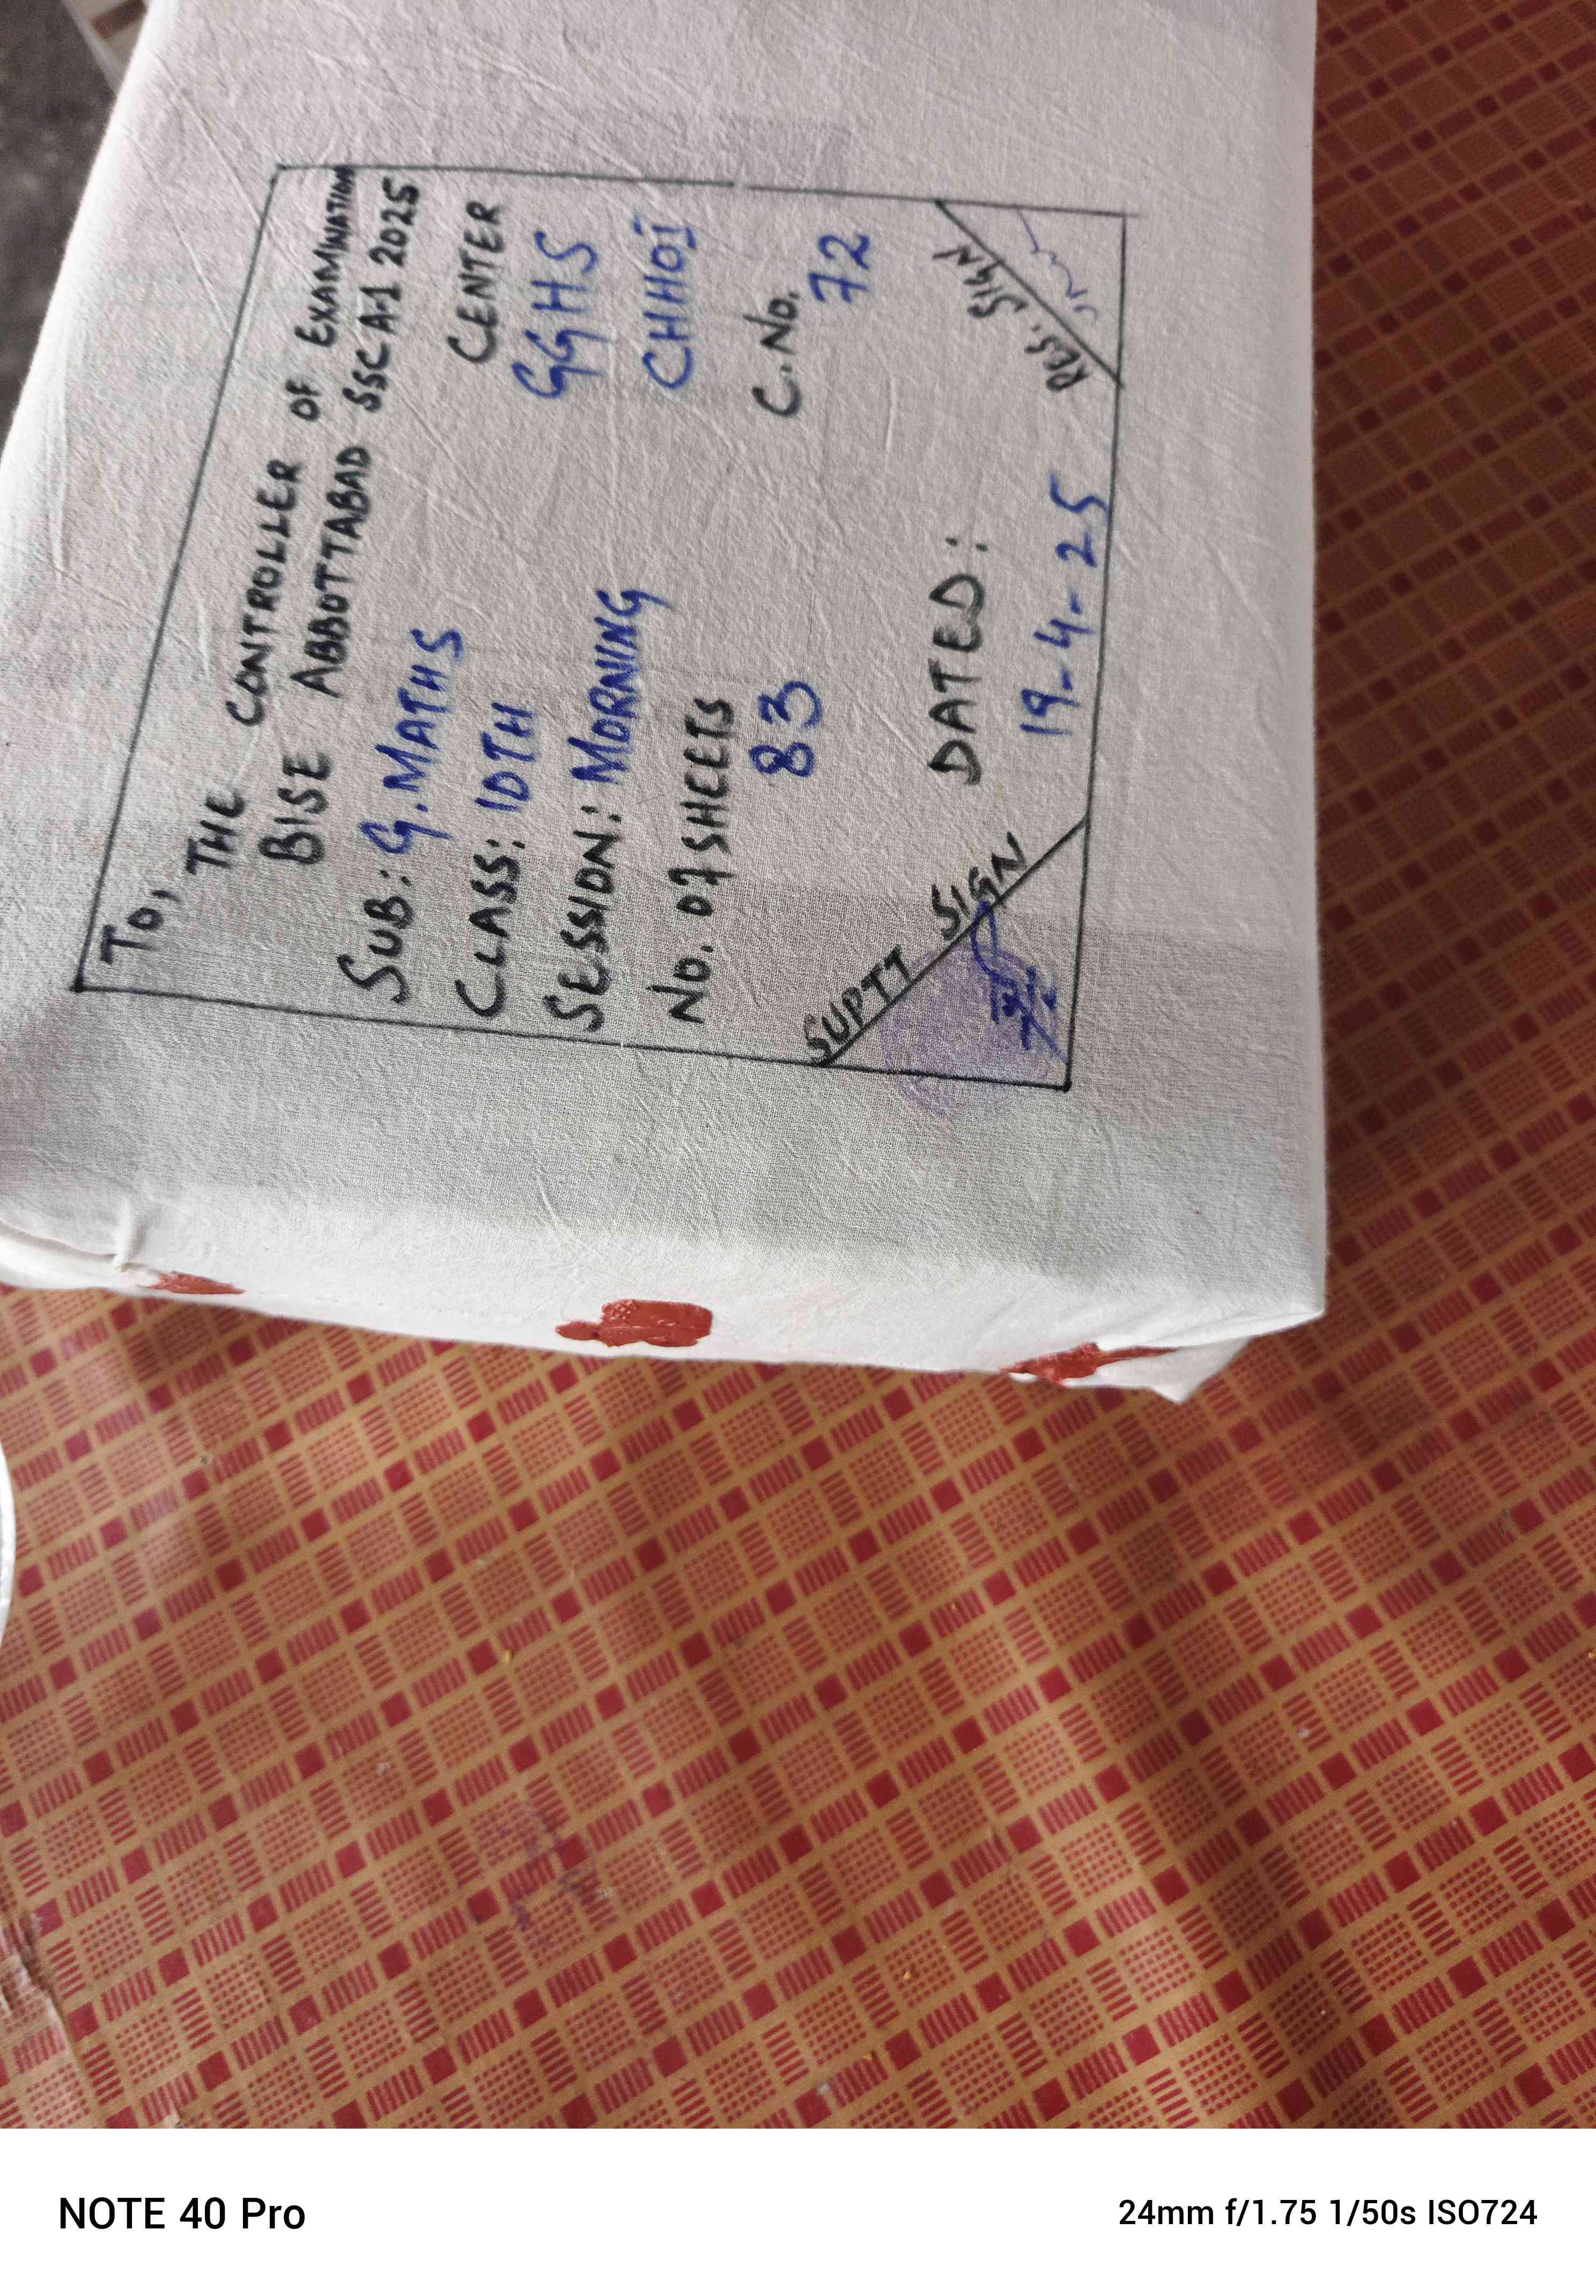 To,
THE CONTROLLER OF EXAMINATION
BISE ABBOTTABAD SSC A-1 2025
SUB: G.MATHS
CENTER
CLASS: 10TH
GGHS
SESSION: MORNING
CHHOI
No. OF SHEETS
83
C.No.
72
SUPTT SIGN
DATED:
19-4-25
RES. SIGN
NOTE 40 Pro
24mm f/1.75 1/50s ISO724